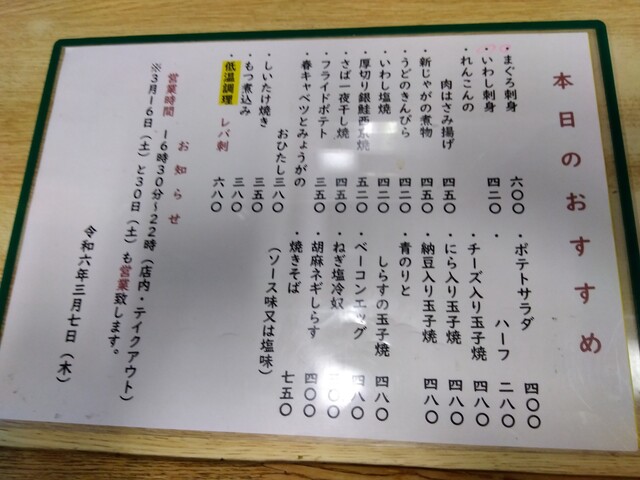 本日のおすすめ
・まぐろ刺身 六〇〇
・いわし刺身 四二〇
・れんこんの
肉はさみ揚げ 四五〇
・新じゃがの煮物 四五〇
・うどのきんぴら 四二〇
・いわし塩焼 四二〇
・厚切り銀鮭西京焼 五二〇
・さば一夜干し焼 四五〇
・フライドポテト 三五〇
・春キャベツとみょうがの
おひたし 三八〇
・しいたけ焼き 三五〇
・もつ煮込み 三八〇
・低温調理 レバ刺 六八〇
・ポテトサラダ 四〇〇
・ ハーフ 二八〇
・チーズ入り玉子焼 四八〇
・にら入り玉子焼 四八〇
・納豆入り玉子焼 四八〇
・青のりと
しらすの玉子焼 四八〇
・ベーコンエッグ 四八〇
・ねぎ塩冷奴 〇〇
・胡麻ネギしらす 四〇〇
・焼きそば
(ソース味又は塩味) 七五〇
お知らせ
営業時間 16時30分~22時(店内・テイクアウト)
※3月16日(土)と30日(土)も営業致します。
令和六年三月七日(木)